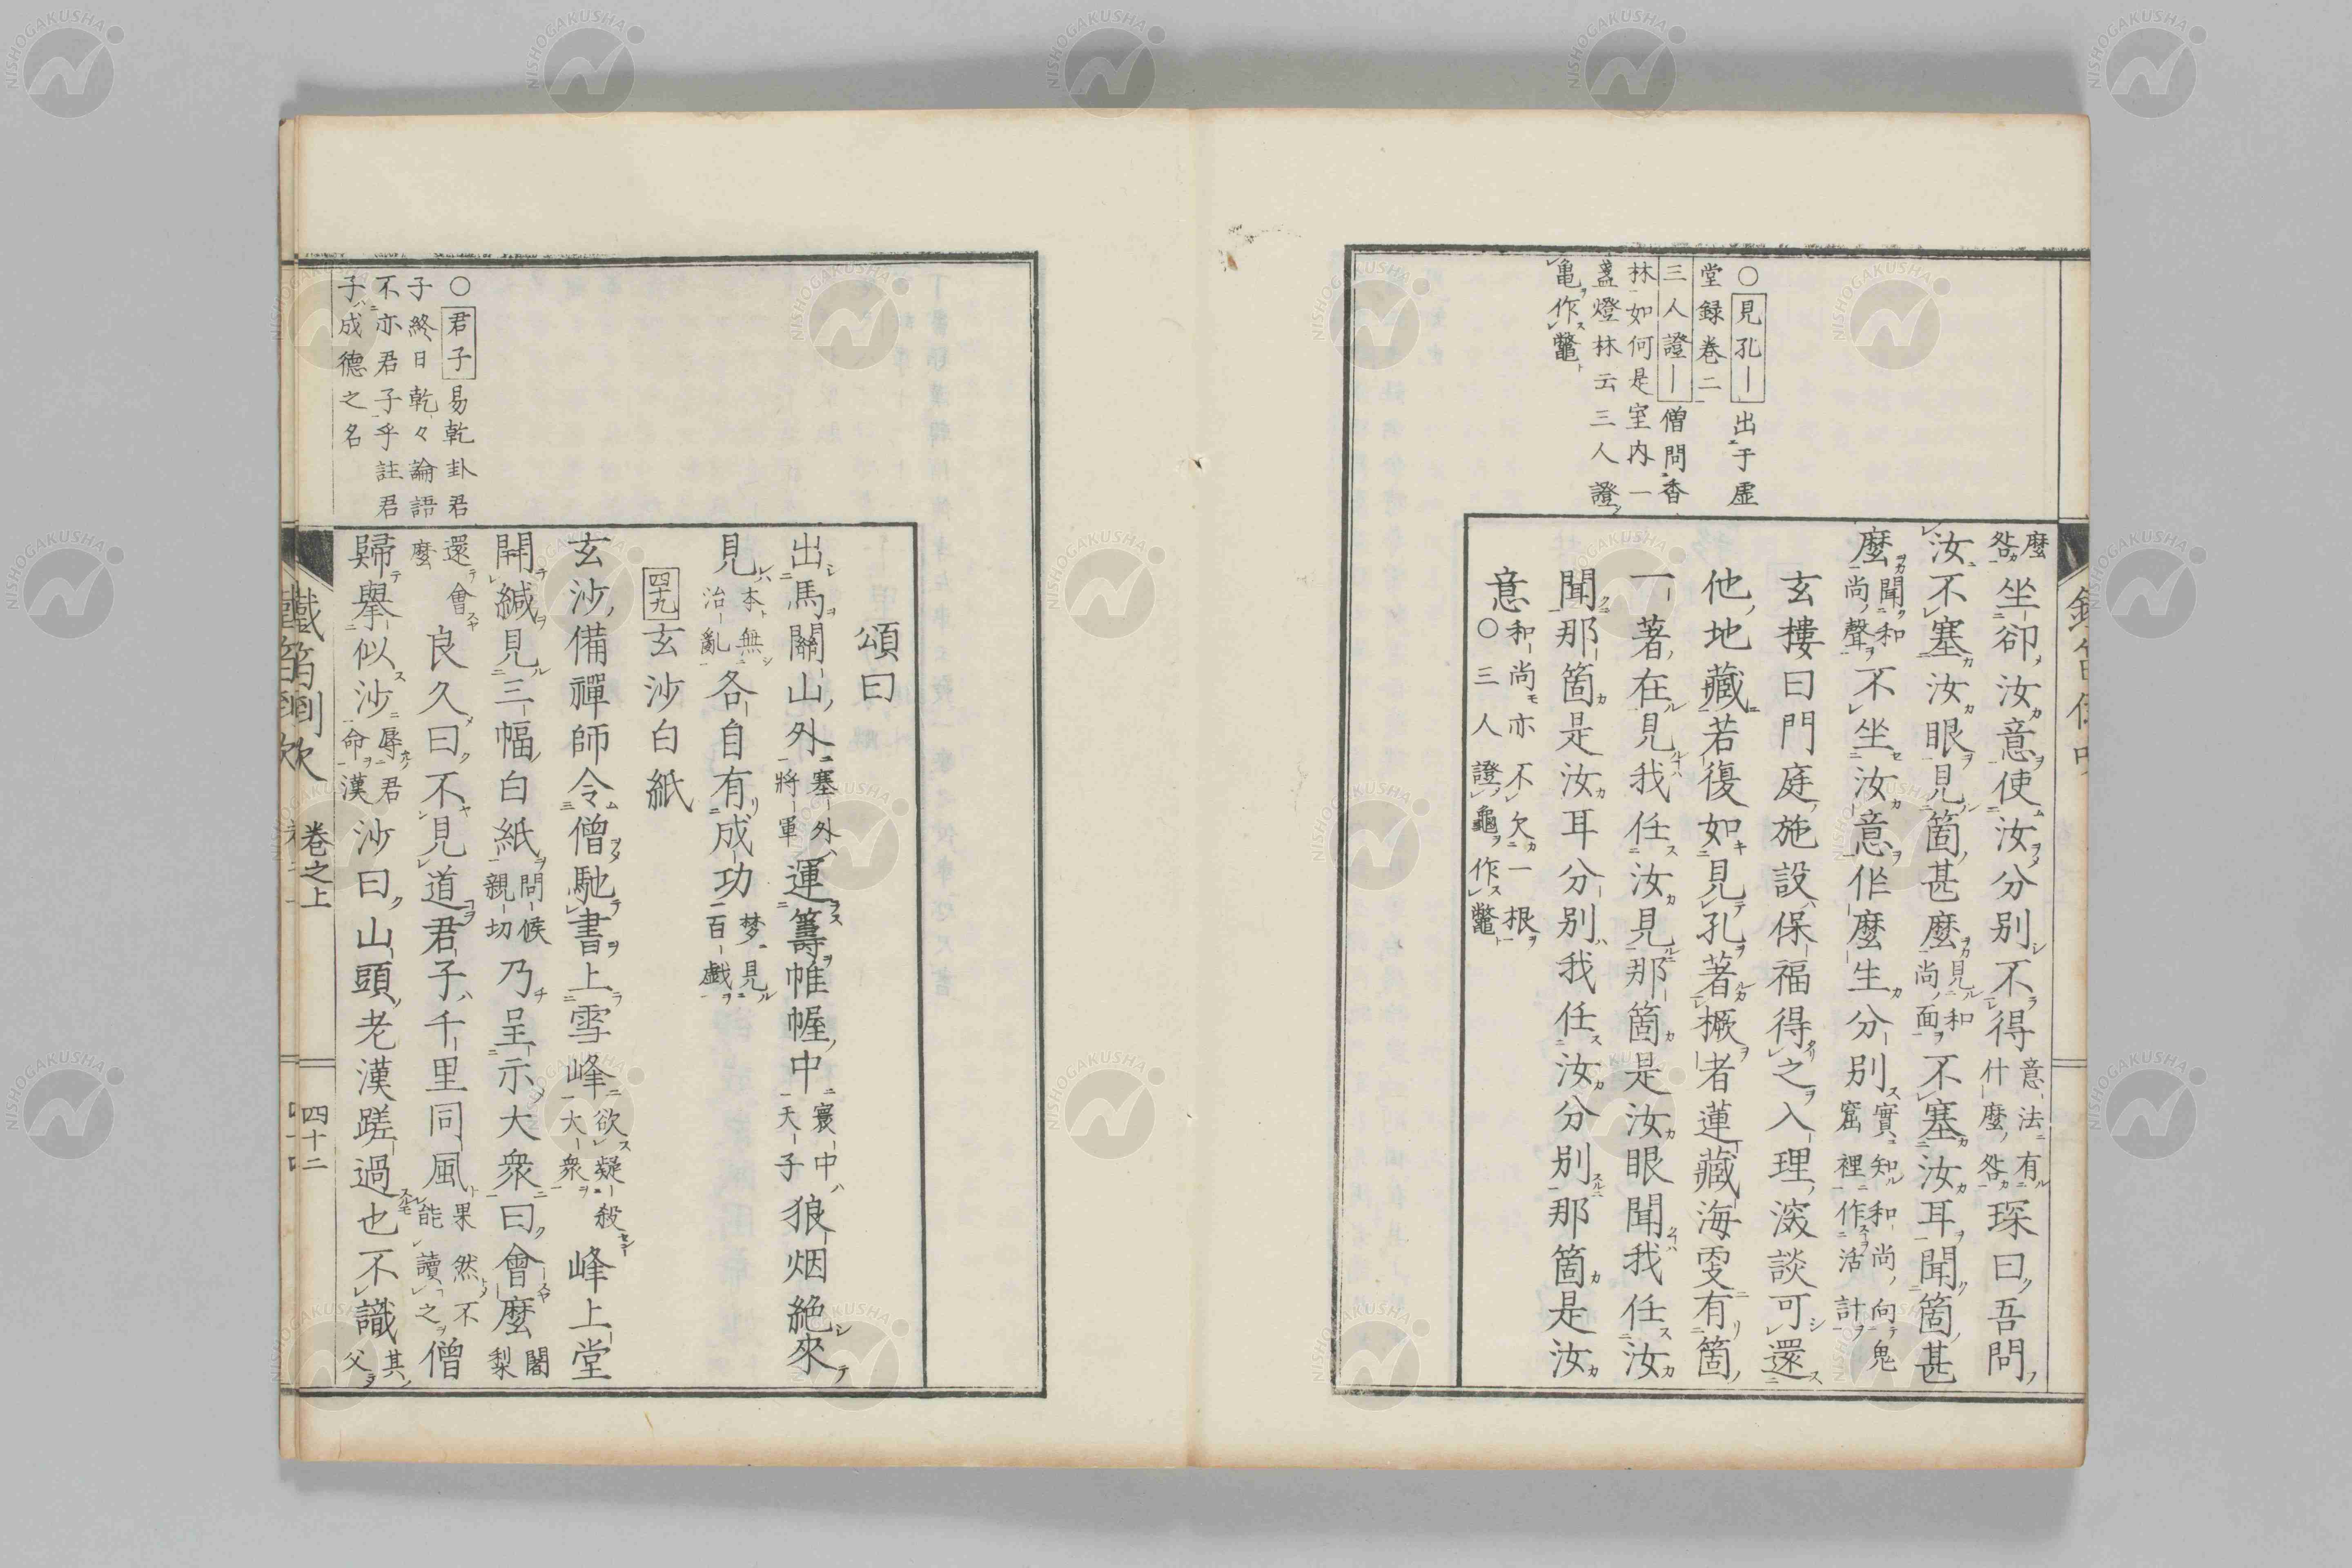 ○見孔｜出于虛
堂録卷二
三人證｜僧問香
林如何是室内一
盞燈林云三人證
亀作鼈
麼咎坐卻汝意使汝分别不得意法有什麼咎琛曰吾問
汝不塞汝眼見箇甚麼見和尚面不塞汝耳聞箇甚
麼聞和尚聲不坐汝意作麼生分别實知和尚向鬼窟裡作活計
玄樓曰門庭施設保福得之入理㴱談可還
他地藏若復如見孔著橛者蓮藏海㪅有箇
一著在見我任汝見那箇是汝眼聞我任汝
聞那箇是汝耳分别我任汝分别那箇是汝
意和尚亦不欠一根○三人證龜作鼈
頌曰
出馬關山外塞外將軍運籌帷幄中寰中天子狼烟絶來
見本無治亂各自有成功梦見百戲
四十九玄沙白紙
玄沙備禪師令僧馳書上雪峰欲疑殺大衆峰上堂
開緘見三幅白紙問候親切乃呈示大衆曰會麼闍梨
還會麼良久曰不見道君子千里同風果然不能讀之僧
歸擧似沙辱君命漢沙曰山頭老漢蹉過也不識其父
○君子易乾卦君
子終日乾々論語
不亦君子乎註君
子成德之名
鐵笛倒吹
卷之上
四十二
NISHOGAKUSHA